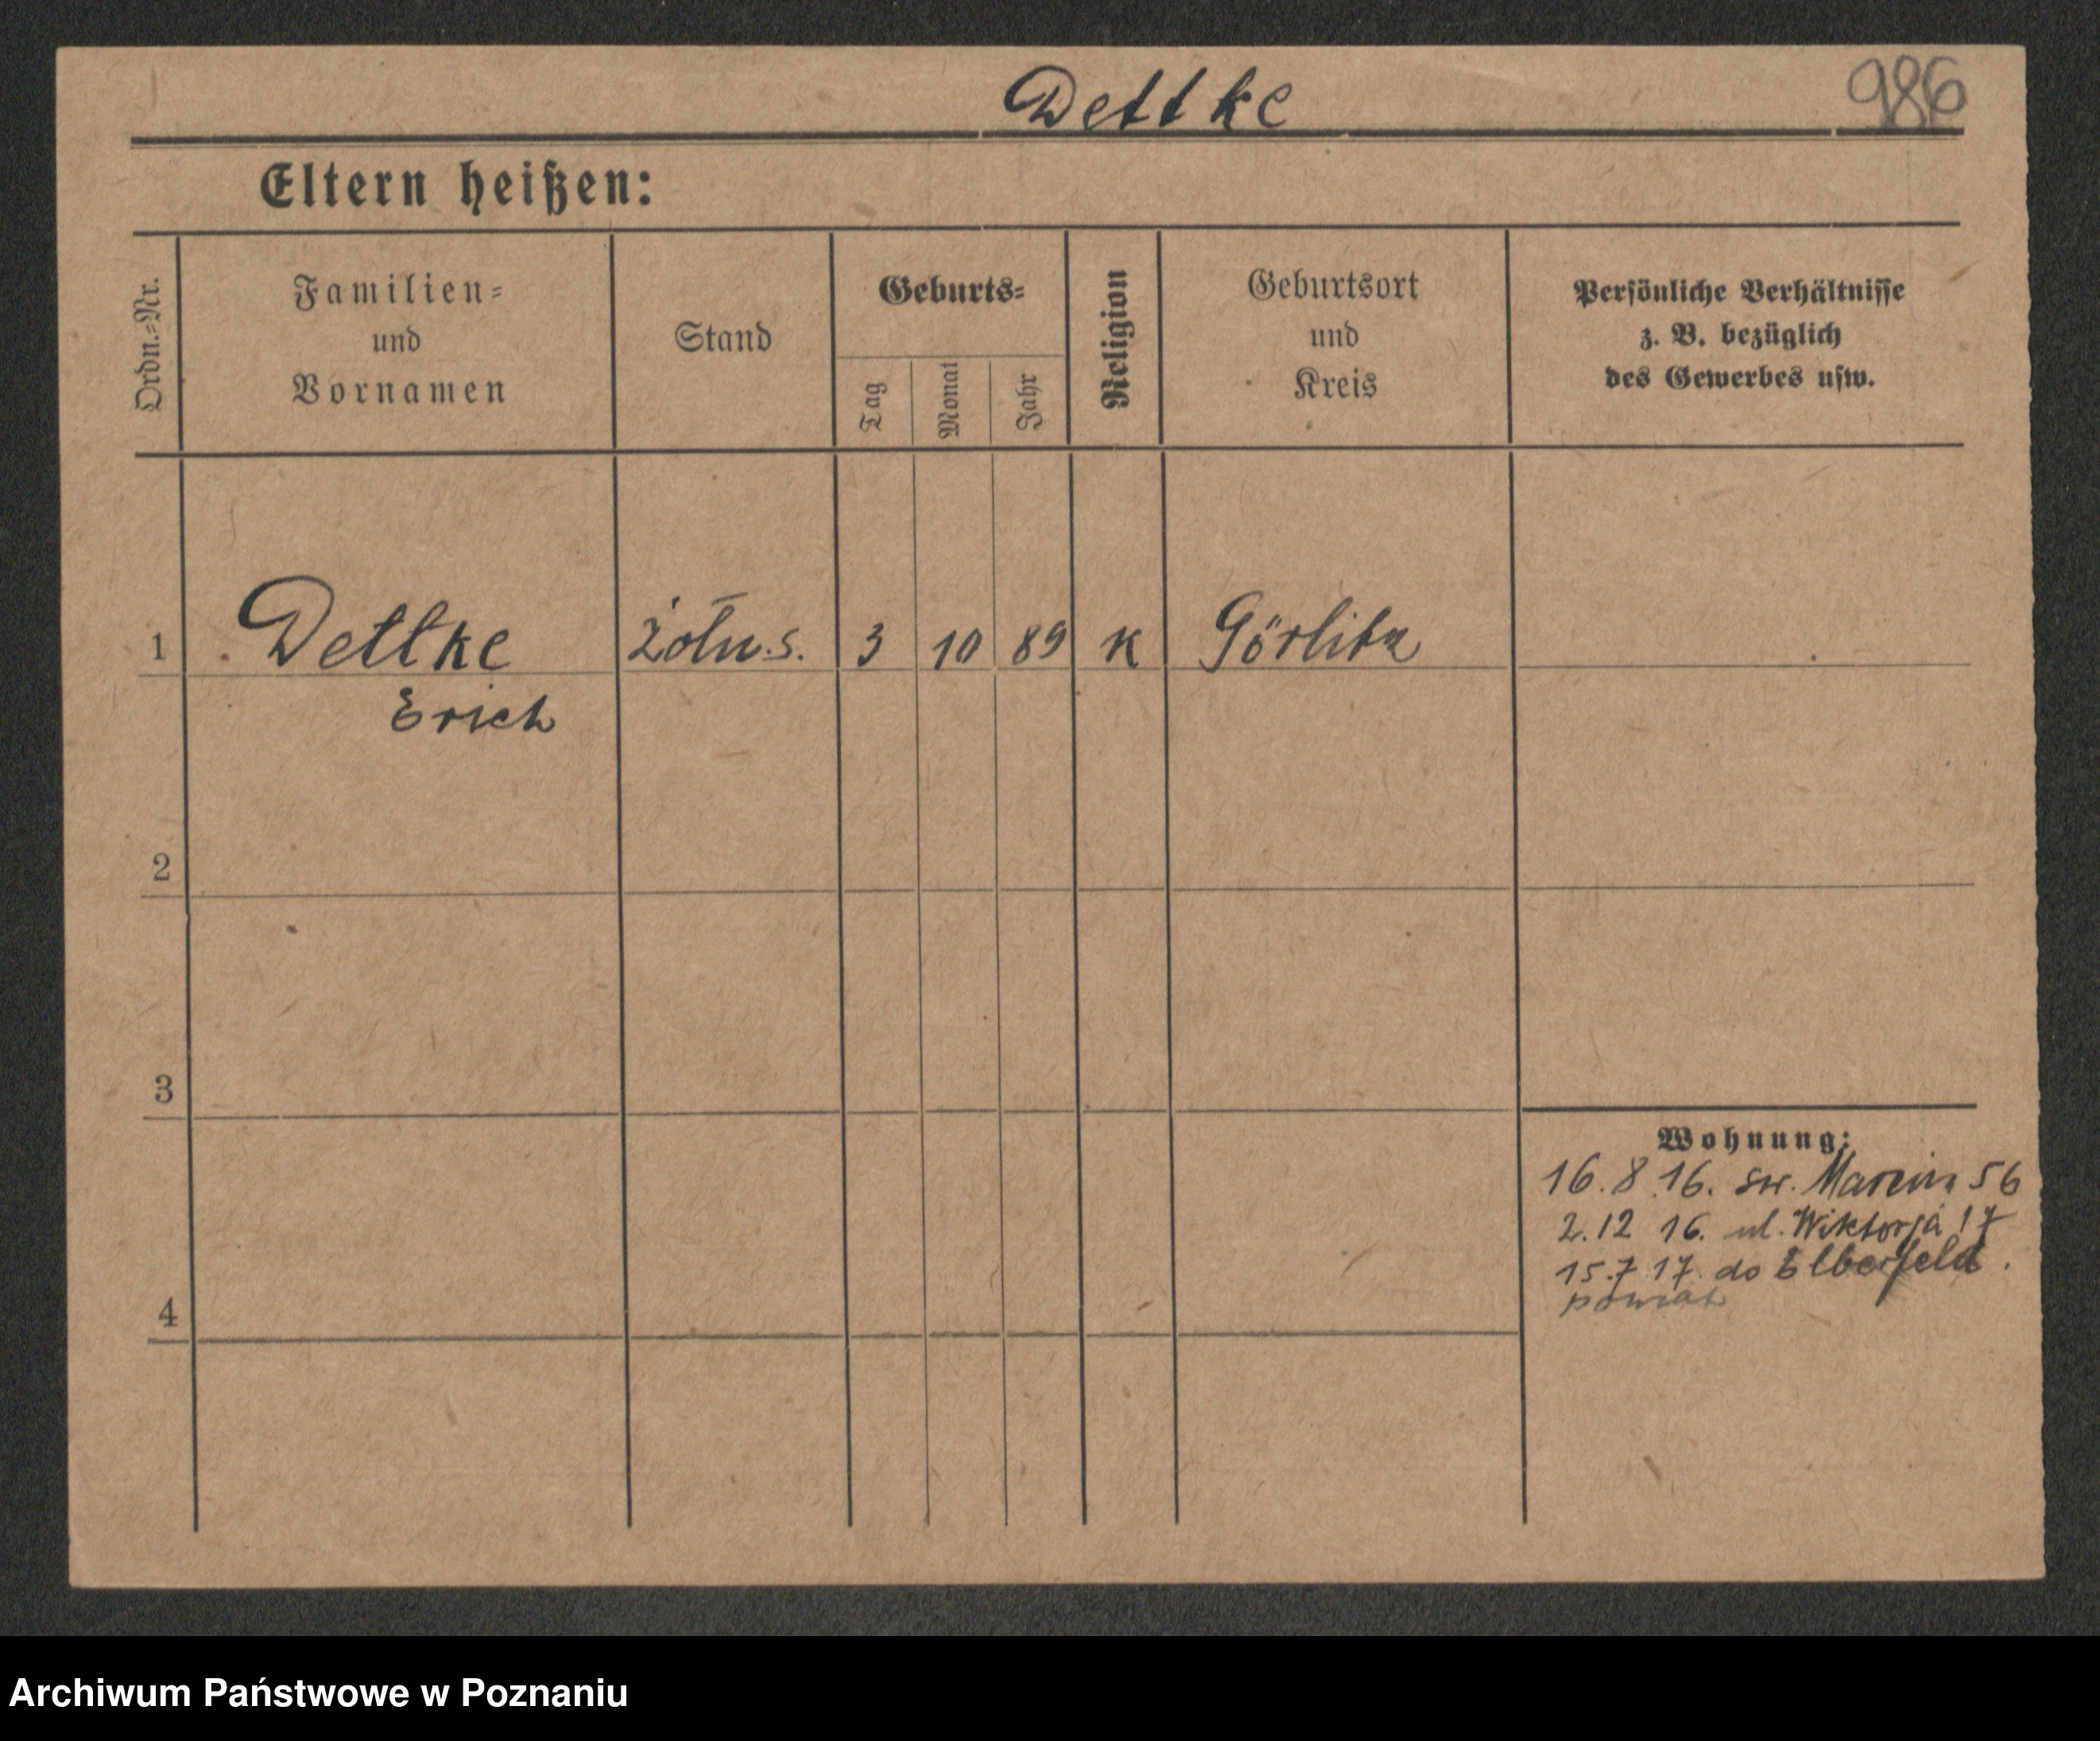 Dettke
986
Eltern heißen:
Ordn.-Nr.
Familien-
und
Vornamen
Stand
Geburts-
Tag
Monat
Jahr
Religion
Geburtsort
und
Kreis
Persönliche Verhältnisse
z. B. bezüglich
des Gewerbes usw.
1 Dettke żołn. s. 3 10 89 K Görlitz
Erich
2
3
4
Wohnung:
16.8.16. św. Marcin 56
2.12 16. ul. Wiktorja 17
15.7 17. do Elberfeld.
powiat
Archiwum Państwowe w Poznaniu